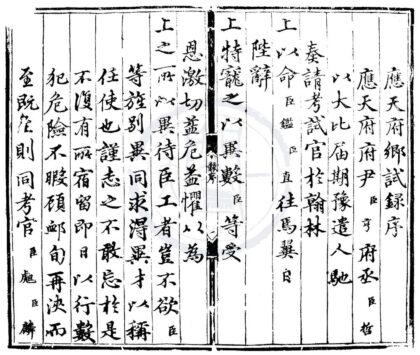 應天府鄉試錄序
應天府府尹臣亨府丞臣哲
以大比届期豫遣人馳
奏請考試官於翰林
上以命臣鑑臣直往焉冀日
陛辭
上特寵之以異數臣等受
恩激切益危益懼以為
上之所以異待臣工者豈不欲臣
等旌别異同求得異才以稱
任使也謹志之不敢忘於是
不復有所宿留即日以行數
犯危險不暇顧䘏旬再浹而
至既至則同考官臣彪臣麟